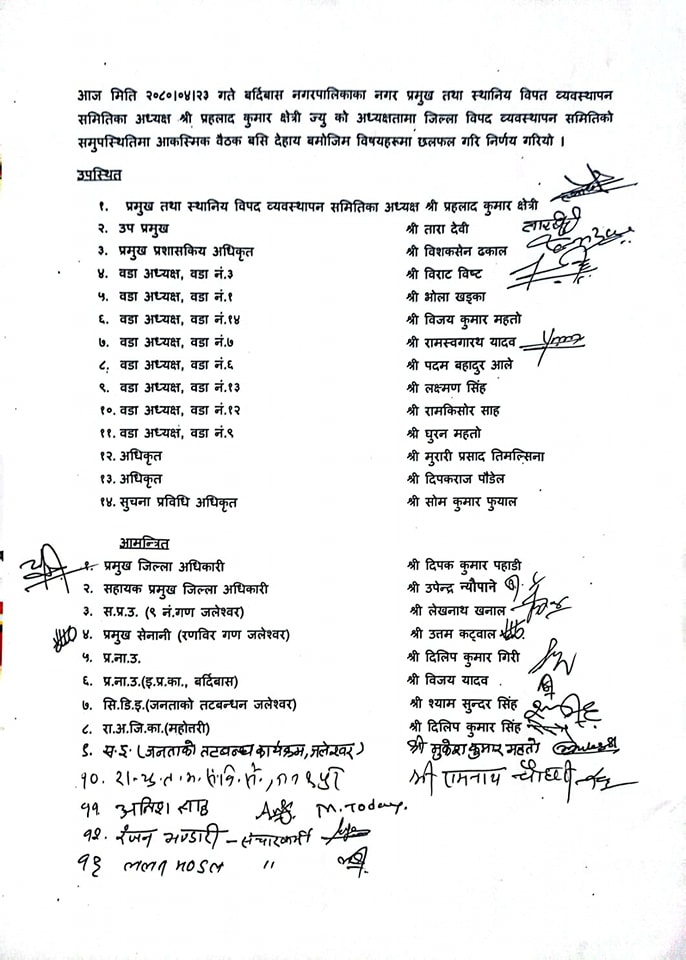 आज मिति २०८०।०४।२३ गते बर्दिबास नगरपालिकाका नगर प्रमुख तथा स्थानिय विपत व्यवस्थापन
समितिका अध्यक्ष श्री प्रहलाद कुमार क्षेत्री ज्यु को अध्यक्षतामा जिल्ला विपद व्यवस्थापन समितिको
समुपस्थितिमा आकस्मिक वैठक बसि देहाय बमोजिम विषयहरूमा छलफल गरि निर्णय गरियो ।
उपस्थित
१. प्रमुख तथा स्थानिय विपद व्यवस्थापन समितिका अध्यक्ष श्री प्रहलाद कुमार क्षेत्री
२. उप प्रमुख श्री तारा देवी
३. प्रमुख प्रशासकिय अधिकृत श्री विशकसेन ढकाल
४. वडा अध्यक्ष, वडा नं.३ श्री विराट विष्ट
५. वडा अध्यक्ष, वडा नं.१ श्री भोला खड्का
६. वडा अध्यक्ष, वडा नं.१४ श्री विजय कुमार महतो
७. वडा अध्यक्ष, वडा नं.७ श्री रामस्वगारथ यादव
८. वडा अध्यक्ष, वडा नं.६ श्री पदम बहादुर आले
९. वडा अध्यक्ष, वडा नं.१३ श्री लक्ष्मण सिंह
१०. वडा अध्यक्ष, वडा नं.१२ श्री रामकिसोर साह
११. वडा अध्यक्ष, वडा नं.९ श्री घुरन महतो
१२. अधिकृत श्री मुरारी प्रसाद तिमल्सिना
१३. अधिकृत श्री दिपकराज पौडेल
१४. सुचना प्रविधि अधिकृत श्री सोम कुमार फुयाल
आमन्त्रित
१. प्रमुख जिल्ला अधिकारी श्री दिपक कुमार पहाडी
२. सहायक प्रमुख जिल्ला अधिकारी श्री उपेन्द्र न्यौपाने
३. स.प्र.उ. (९ नं.गण जलेश्वर) श्री लेखनाथ खनाल
४. प्रमुख सेनानी (रणविर गण जलेश्वर) श्री उत्तम कट्वाल
५. प्र.ना.उ. श्री दिलिप कुमार गिरी
६. प्र.ना.उ.(इ.प्र.का., बर्दिबास) श्री विजय यादव
७. सि.डि.इ.(जनताको तटबन्धन जलेश्वर) श्री श्याम सुन्दर सिंह
८. रा.अ.जि.का.(महोत्तरी) श्री दिलिप कुमार सिंह
९. स.इ. (जनताको तटबन्ध कार्यक्रम, जलेश्वर) श्री मुकेश कुमार महतो
१०. श्री रामनाथ चौधरी
११ M. Today.
१२. रंजन भण्डारी - संचारकर्मी
१३ "